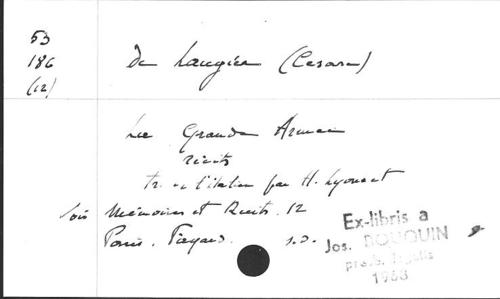 53
186
(12)
De Laugier (Cesare)
La Grande Armée
récits
tr. de l'italien par H. Lyonnet
Mémoires et Récits. 12
Paris. Fayard. s.d.
Ex-libris a
Jos. BOUQUIN
1968